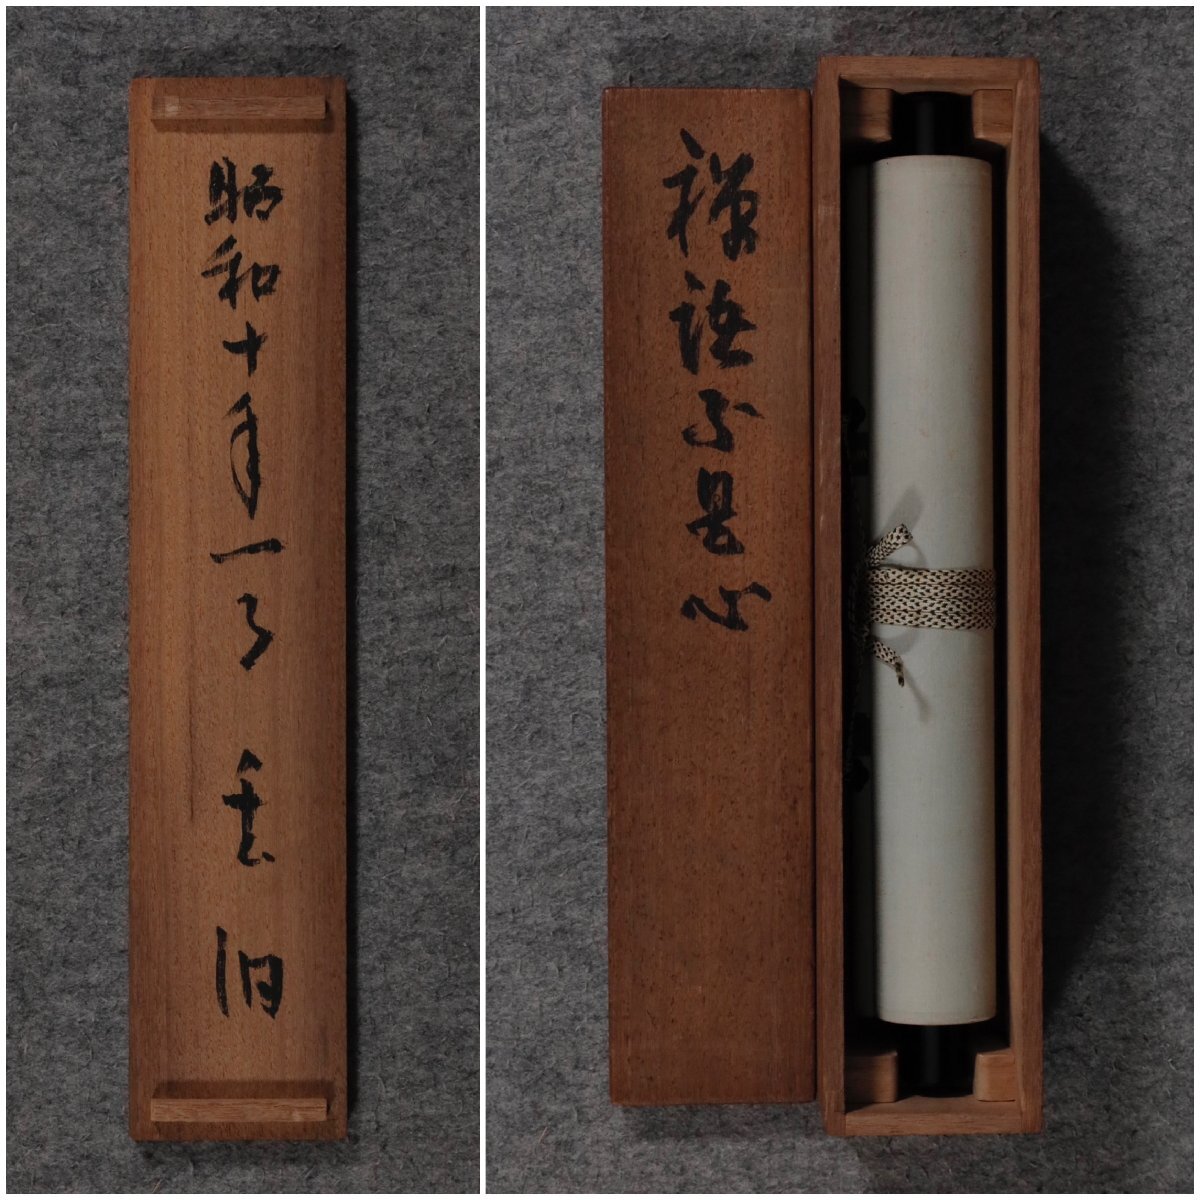 昭和十年一月
禅語不是心